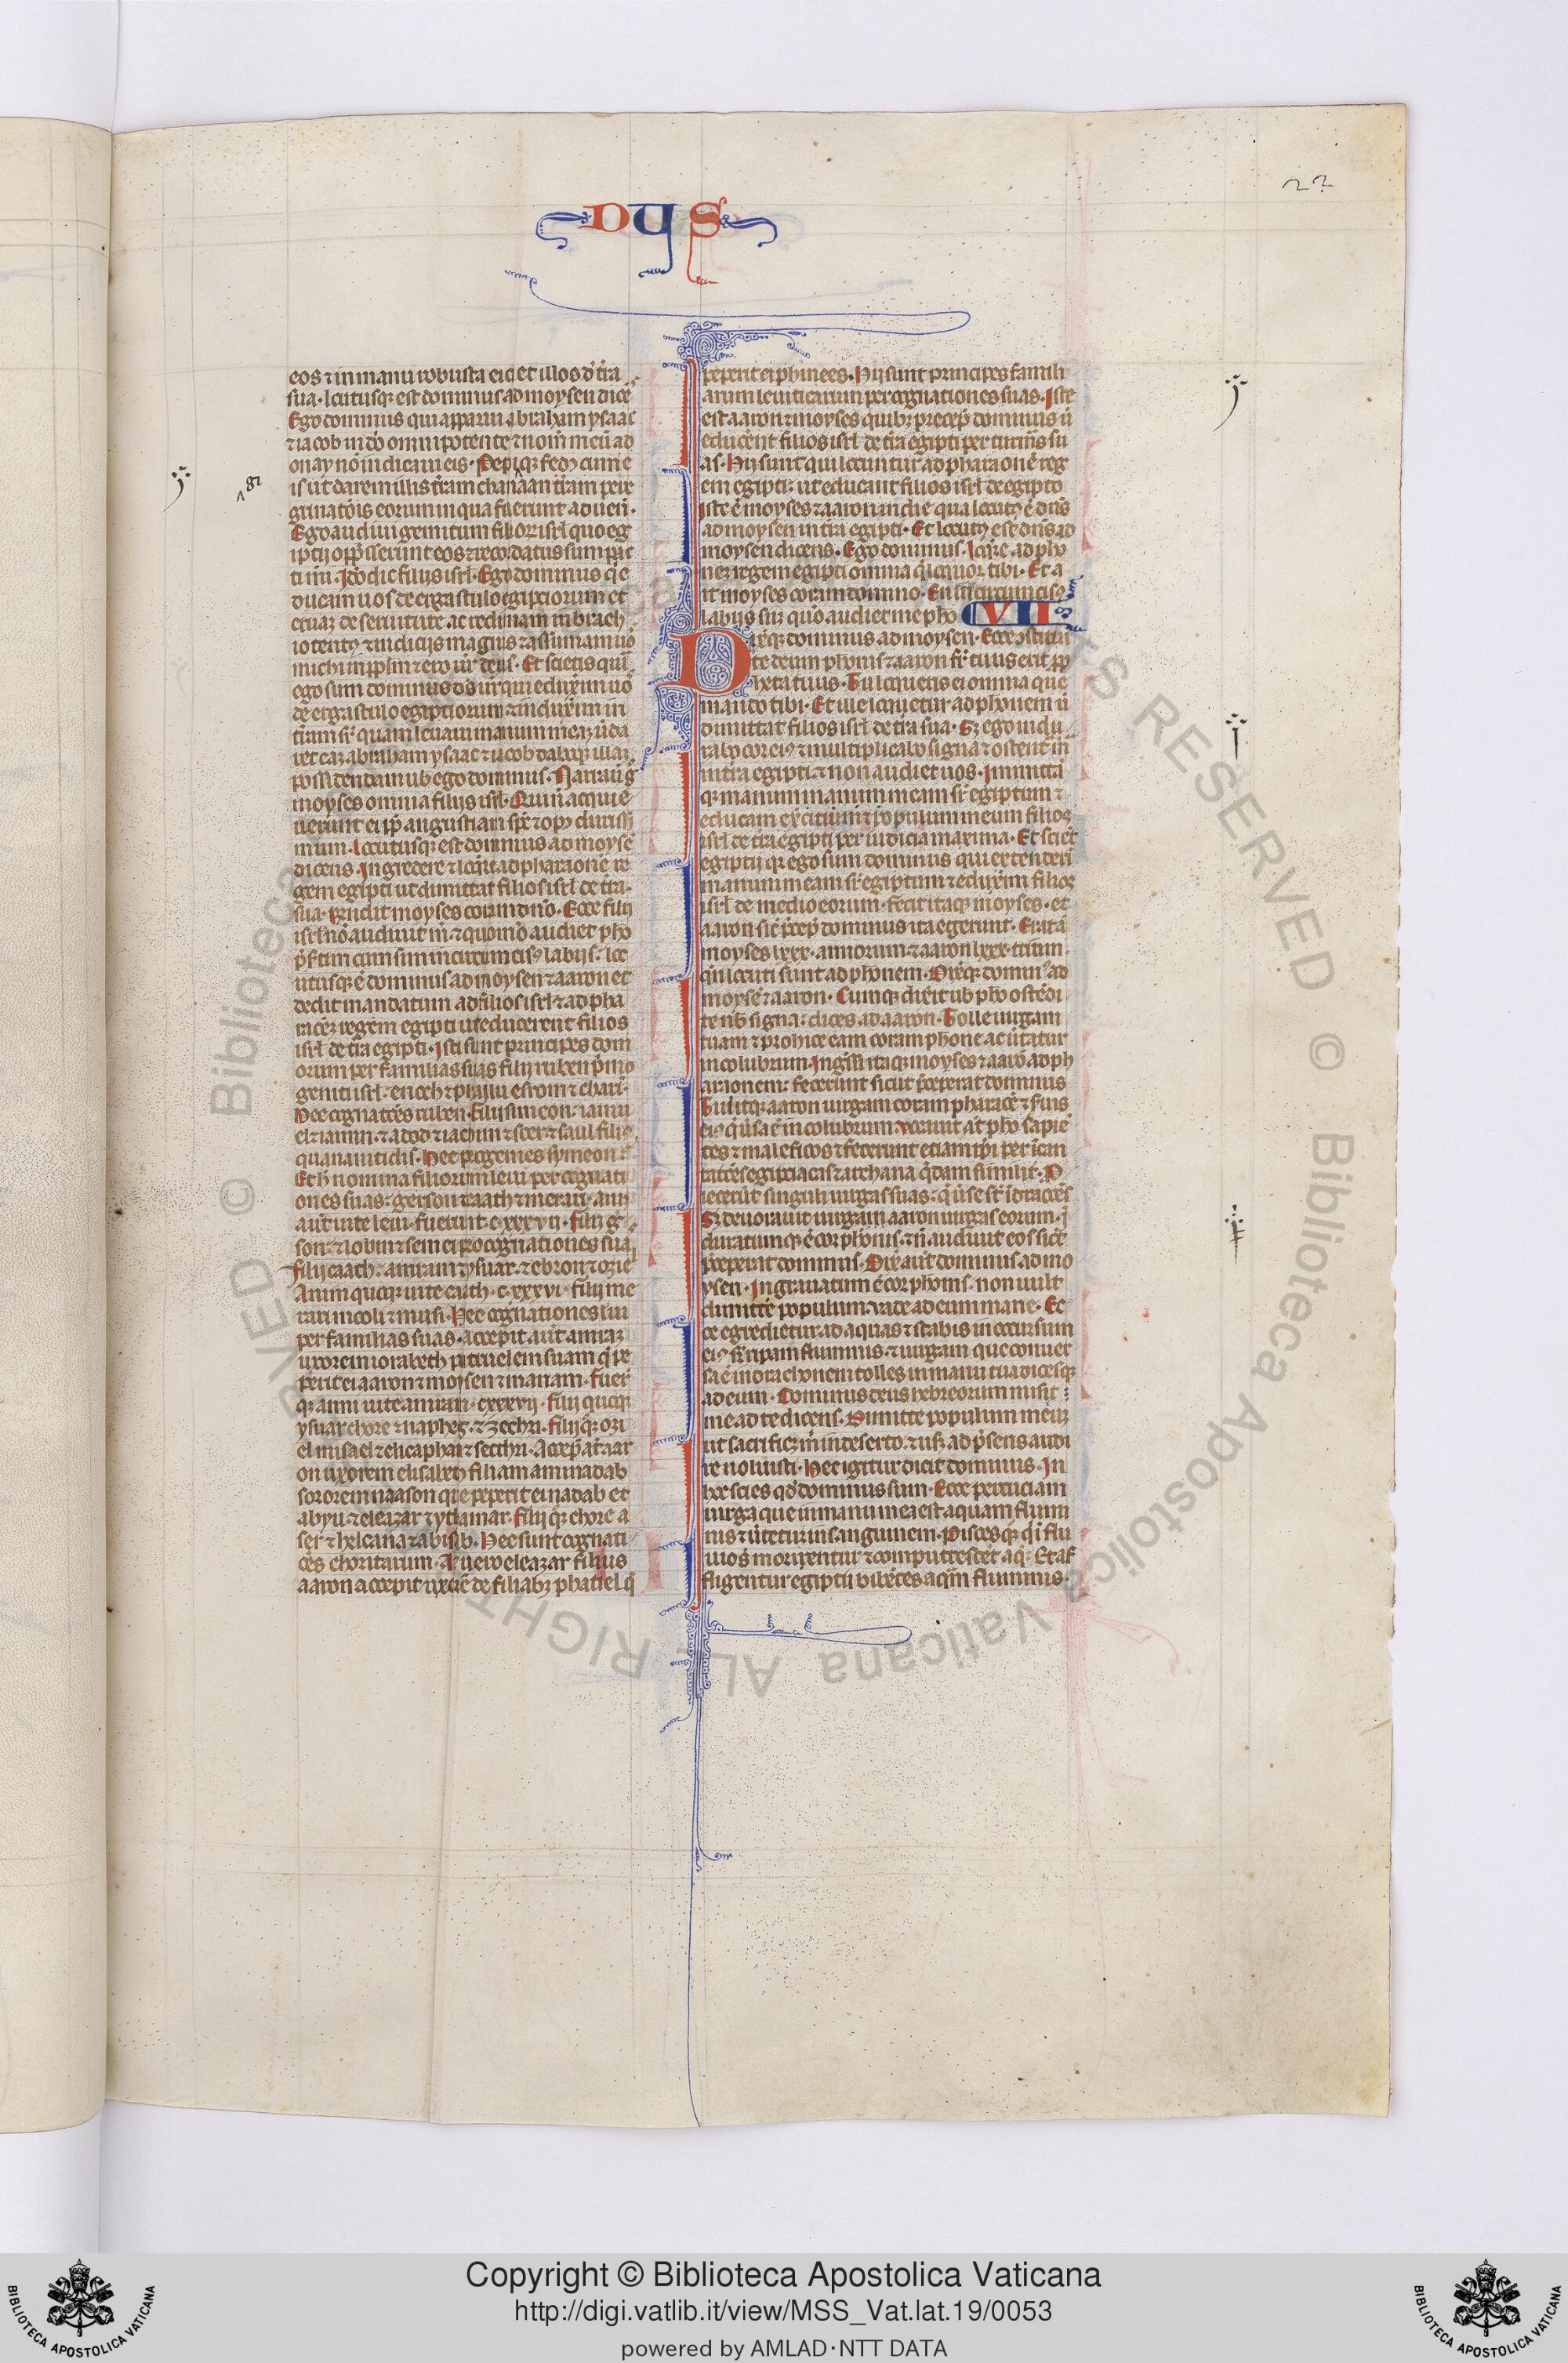 27
DYS
eos ⁊ in manu robusta eiciet illos d̓ t̄ra
sua. locutusq; est dominus ad moysen dicē
Ego dominus qui apparui abraham ysaac
⁊ iacob in dō omnipotente ⁊ nom̄ meū ad
onay nō indicaui eis. Pepiq; fed⁹ cum e
is ut darem illis t̄ram chanaan t̄ram pere
grinatōis eorum in qua fuerunt aduen̄.
Ego audiui gemitum filioꝝ isrl̄ quo eg
iptii opp̄sserunt eos ⁊ recordatus sum pac
ti mī. Ido dic filiis isrl̄. Ego dominus q̄ e
ducam uos de ergastulo egiptiorum et
eruaꝫ de seruitute. ac redimam in brach
io tento ⁊ iudiciis magnis ⁊ assumam uo
michi in pplm̄ ⁊ ero ur̄ deus. Et scietis qm̄
ego sum dominus ds̄ ur̄ qui eduxerim uo
de ergastulo egiptiorum ⁊ induxerim in
t̄ram sr̄ quam leuaui manum meaꝫ ut da
ret eaꝫ abraham ysaac ⁊ iacob daboq; illaꝫ
possidendam uob̄ ego dominus. Narrau̅ g̊
moyses omnia filiis isrl̄. Qui n̄ acquie
uerunt ei pp̄ angustiam sps̄ ⁊ op⁹ duriss
mum. locutusq; est dominus ad moysē
dicens. Ingredere ⁊ loq̄re ad pharaonē re
gem egipti ut dimittat filios isrl̄ de t̄ra.
sua. Rn̄dit moyses coram dn̄o. Ecce filii
isrl̄ nō audiūt m̄ ⁊ quomō audiet pho
p̄s̄tim cum sim incircumcis⁹ labiis. loc
utusq; ē dominus ad moysen ⁊ aaron et
dedit mandatum ad filios isrl̄ ⁊ ad pha
raoēꝫ regem egipti ut educerent filios
isrl̄ de t̄ra egipti. Isti sunt principes dom
orum per familias suas filii ruben p̄mo
geniti isrl̄. enoch ⁊ phallu esrom ⁊ charī.
Hee cognatiōes ruben. Filii simeon. iamu
el ⁊ iamin. ⁊ adod ⁊ iachin ⁊ soer ⁊ saul fili⁹
quananitidis. Hee progenies symeon
Et h̄ nomina filiorum leui per cognati
ones suas. gerson caath ⁊ merari. anni
aūt uite leui fuerunt. c.xxxvii. Filii g̊
son. ⁊ lobini ⁊ semei per cognationes suas
filii caath. amram ⁊ ysuar. ⁊ ebron ⁊ ozie
Annum quoq; uite caath. c.xxxvi. filii me
rari mooli ⁊ musi. Hee cognationes leui
per familias suas. accepit aūt amraꝫ
uxorem iocabeth patruelem suam q̄ pe
perit ei aaron ⁊ moysen ⁊ mariam. fuer̄
q; anni uite amram. cxxxvij. filii quoq;
ysuar chore ⁊ napheg. ⁊ zechri. filii q̊q; ozi
el misael ⁊ elisaphan ⁊ sechri. Accep̄ aūt aar
on uxorem elisabeth filiam aminadab
sororem naason que peperit ei nadab et
abyu ⁊ eleazar ⁊ ythamar. filii q̊q; chore a
ser ⁊ helcana ⁊ abisab. Hee sunt cognati
oēs choritarum. At uero eleazar filius
aaron accepit uxorē de filiabꝫ phatiel q̄
peperit ei phinees. Hii sunt principes famili
arum leuiticarum per cognationes suas. Iste
est aaron ⁊ moyses quibꝫ precep̄ dominus ū
educerent filios isrl̄ de t̄ra egipti per turmas su
as. Hii sunt qui locuntur ad pharaonē reg
em egipti: ut educant filios isrl̄ de egipto
Iste ē moyses ⁊ aaron in die qua locut⁹ ē dn̄s
ad moysen in t̄ra egipti. Et locut⁹ est dn̄s ad
moysen dicens. Ego dominus. loq̄re ad pho
nem regem egipti omnia q̄ loquor tibi. Et a
it moyses coram domino. En incircuncis⁹
labiis suꝫ quō audiet me pho VII
Dixitq; dominus ad moysen. Ecce ostitui
te deum phonis ⁊ aaron fr̄ tuus erit pp
heta tuus. Tu loqueris ei omnia que
mando tibi. Et ille loquetur ad phonem ū
dimittat filios isrl̄ de t̄ra sua. Sꝫ ego indu
rabo cor ei⁹ ⁊ multiplicabo signa ⁊ ostenta m̄
in t̄ra egipti. ⁊ non audiet uos. Inmittā
q; manum manum meam sr̄ egiptum ⁊
educam exercitum ⁊ populum meum filios
isrl̄ de t̄ra egipti per iudicia maxima. Et scient
egiptii q; ego sum dominus qui extenderī
manum meam sr̄ egiptum ⁊ eduxerim filios
isrl̄ de medio eorum. fecit itaq; moyses. et
aaron sic̄ p̄cep̄ dominus ita egerunt. Erat ā
moyses lxxx. annorum. ⁊ aaron lxxx. trium.
qn̄ locuti sunt ad phonem. Dixq; domin⁹ ad
moysē ⁊ aaron. Cumq; dixerit uob̄ pho ostēdi
te nob̄ signa: dices ad aaron. Tolle uirgam
tuam ⁊ prohice eam coram phone ac ūtatur
in colubrum. Ingssi itaq; moyses ⁊ aarō ad ph
araonem: fecerunt sicut p̄ceperat dominus
Tulitq; aaron uirgam coram pharaoē ⁊ suis
ei⁹ q̄ ūsa ē in colubrum. vocauit aūt pho sapiē
tes ⁊ maleficos ⁊ fecerunt etiam ipi per ican
tatōes egiptiacas ⁊ archana q̄dam similiter. P
iecerūt singuli uirgas suas. q̄ ūse st̄ ī dracōes
Sꝫ deuorauit uirgam aaron uirgas eorum. ī
duratumq; ē cor phonis. ⁊ n̄ audiuit eos sic̄
p̄ceperat dominus. Dix aūt dominus ad mo
ysen. Ingrauatum ē cor phonis. non uult
dimitte populum. vade ad eum mane. Ec
ce egredietur ad aquas ⁊ stabis in occursum
ei⁹ sr̄ ripam fluminis. ⁊ uirgam que conuer
sa ē in drachonem tolles in manu tua dicesq;
ad eum. Dominus deus hebreorum misit
me ad te dicens. Dimitte populum meuꝫ
ut sacrificꝫ m̄ in deserto. ⁊ usꝫ ad p̄sens audi
re noluisti. Hec igitur dicit dominus. In
hoc scies qd̄ dominus sum. Ecce percuciam
uirga que in manu mea est aquam flumi
nis ⁊ ūtetur in sanguinem. Pisces q̊q; q̄ ī flu
uio st̄ morientur ⁊ computrescēt aq̄. Et af
fligentur egiptii bibētes aqm̄ fluminis.
Copyright © Biblioteca Apostolica Vaticana
http://digi.vatlib.it/view/MSS_Vat.lat.19/0053
powered by AMLAD·NTT DATA
BIBLIOTECA APOSTOLICA VATICANA
BIBLIOTECA APOSTOLICA VATICANA
© Biblioteca Apostolica Vaticana ALL RIGHTS RESERVED